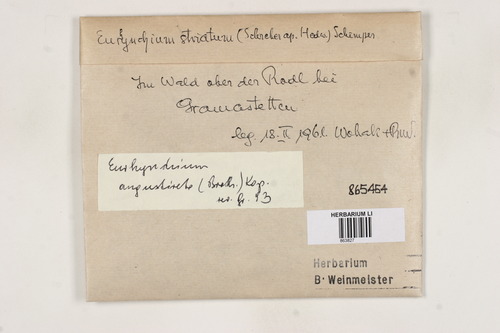 Eurhynchium striatum (Schreber ap. Hedw.) Schimper
Im Wald ober der Rodl bei
Gramastetten
leg. 18. II 1961.
Eurhynchium
angustirete (Broth.) Kop.
rev. Gr. 93
865454
HERBARIUM LI
Herbarium
B. Weinmeister